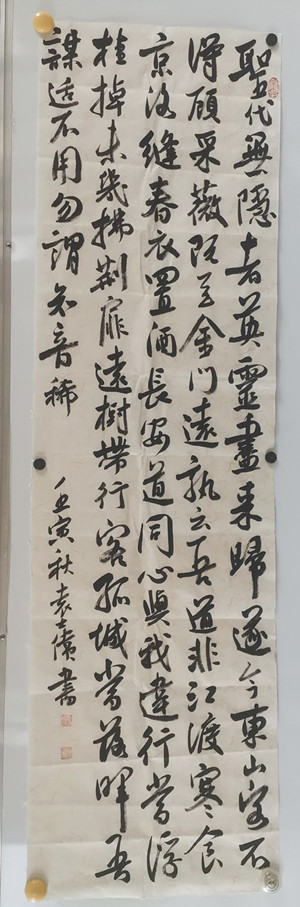 聖代無隱者英靈盡來歸遂令東山客不
得顧采薇既至金門遠孰云吾道非江渡寒食
京洛縫春衣置酒長安道同心與我違行當浮
桂掉未幾拂荊扉遠樹帶行客孤城當落暉吾
謀適不用勿謂知音稀
壬寅秋袁書